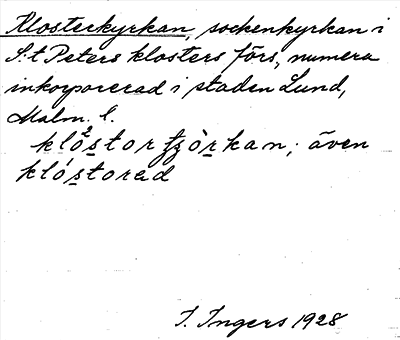 Klosterkyrkan, sockenkyrkan i
S:t Peters klosters förs., numera
inkorporerad i staden Lund,
Malm. l.
klòstorʈʂòrkan; även
klóstorad
I. Ingers 1928